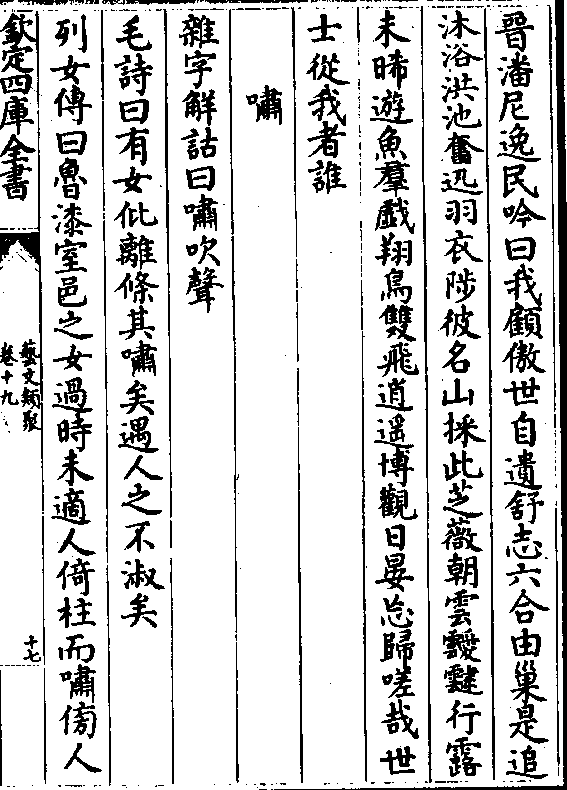 晉潘尼逸民吟曰我顧傲世自遺舒志六合由巢是追
沐浴洪池奮迅羽衣陟彼名山採此芝薇朝雲靉靆行露
未晞遊魚羣戲翔鳥雙飛逍遥博觀日晏忘歸嗟哉世
士從我者誰
嘯
雜字解詁曰嘯吹聲
毛詩曰有女仳離條其嘯矣遇人之不淑矣
列女傳曰魯漆室邑之女過時未適人倚柱而嘯傍人
欽定四庫全書
藝文類聚
卷十九
十七